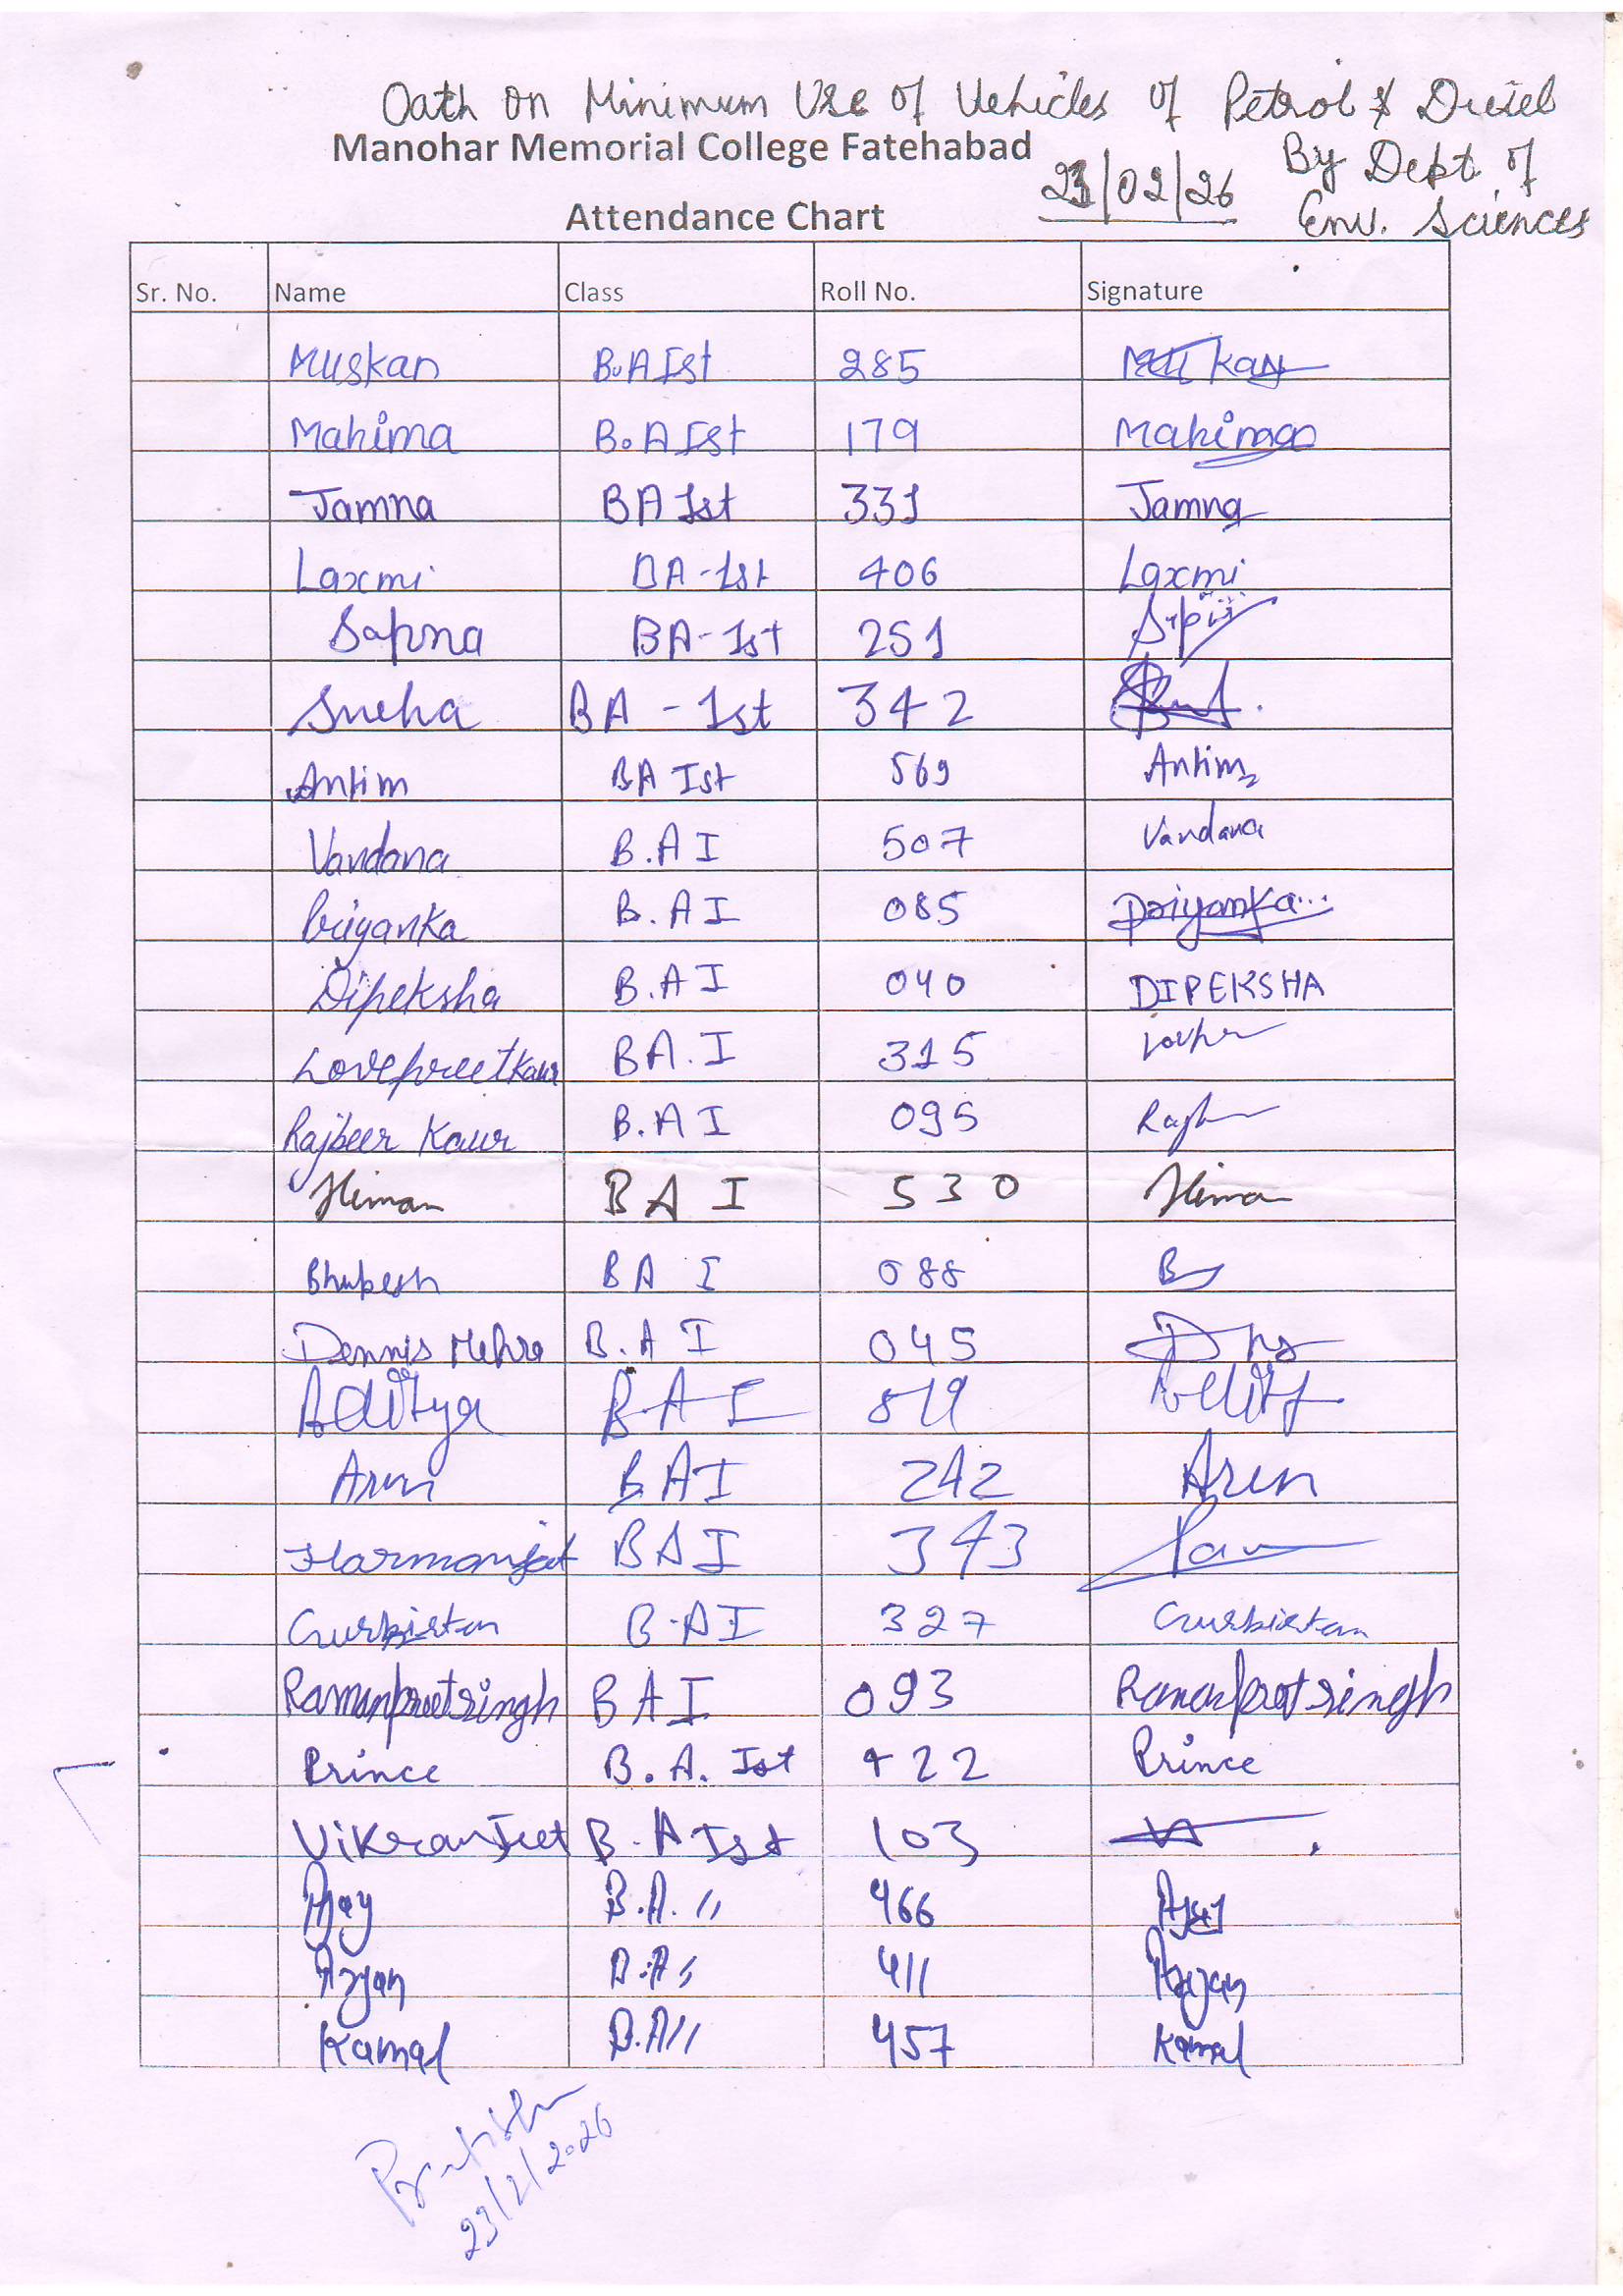 Oath on Minimum Use of Vehicles of Petrol & Diesel
Manohar Memorial College Fatehabad
23/02/26 By Dept. of
Attendance Chart Env. Sciences
Sr. No. Name Class Roll No. Signature
Muskan B.A Ist 285
Mahima B.A Ist 179 Mahima
Jamna BA 1st 331 Jamna
Laxmi BA-1st 406 Laxmi
Sapna BA-1st 251
Sneha BA-1st 342
Antim BA Ist 569 Antim
Vandana B.A I 507 Vandana
Priyanka B.A I 085 Priyanka
Dipeksha B.A I 040 DIPEKSHA
Lovepreet Kaur BA.I 315
Rajbeer Kaur B.A I 095
Himan BA I 530 Himan
Bhupesh BA I 088
Dennis Mehra B.A I 045
Aditya BA I 819
Arun BA I 242 Arun
Harmanjot BA I 343
Gurkirtan B.A I 327 Gurkirtan
Ramanpreet singh BA I 093 Ramanpreet singh
Prince B.A. Ist 422 Prince
Vikramjeet B.A Ist 103
Ajay B.A. " 466 Ajay
Aryan B.A " 411 Aryan
Kamal B.A " 457 Kamal
23/2/2026